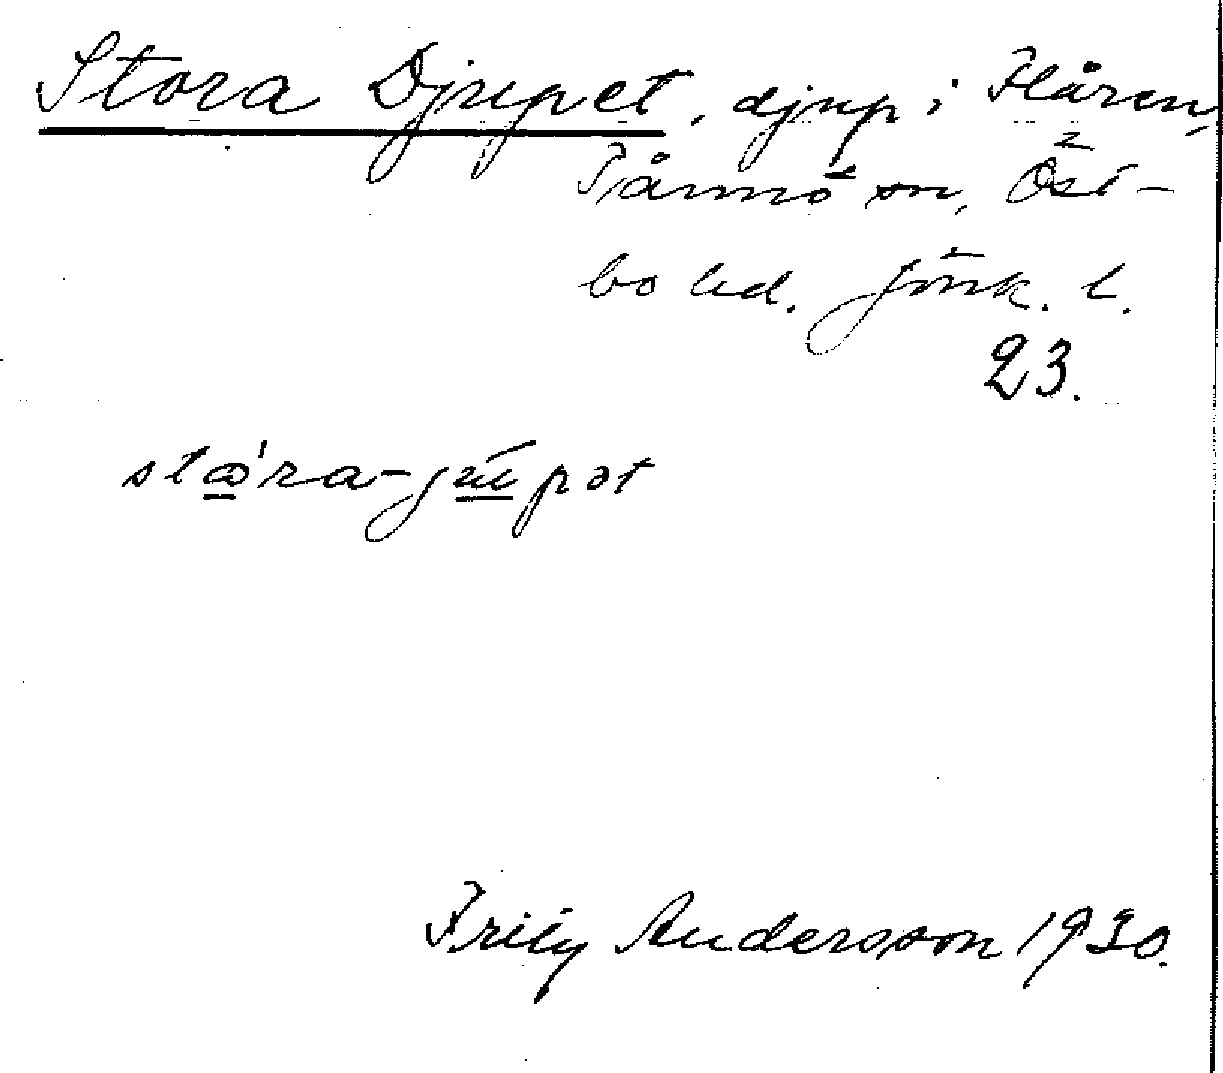 Stora Djupet, djup i Flåren,
Tånnö sn, Öst-
bo hd. Jönk. l.
23.
Fritz Andersson 1930.